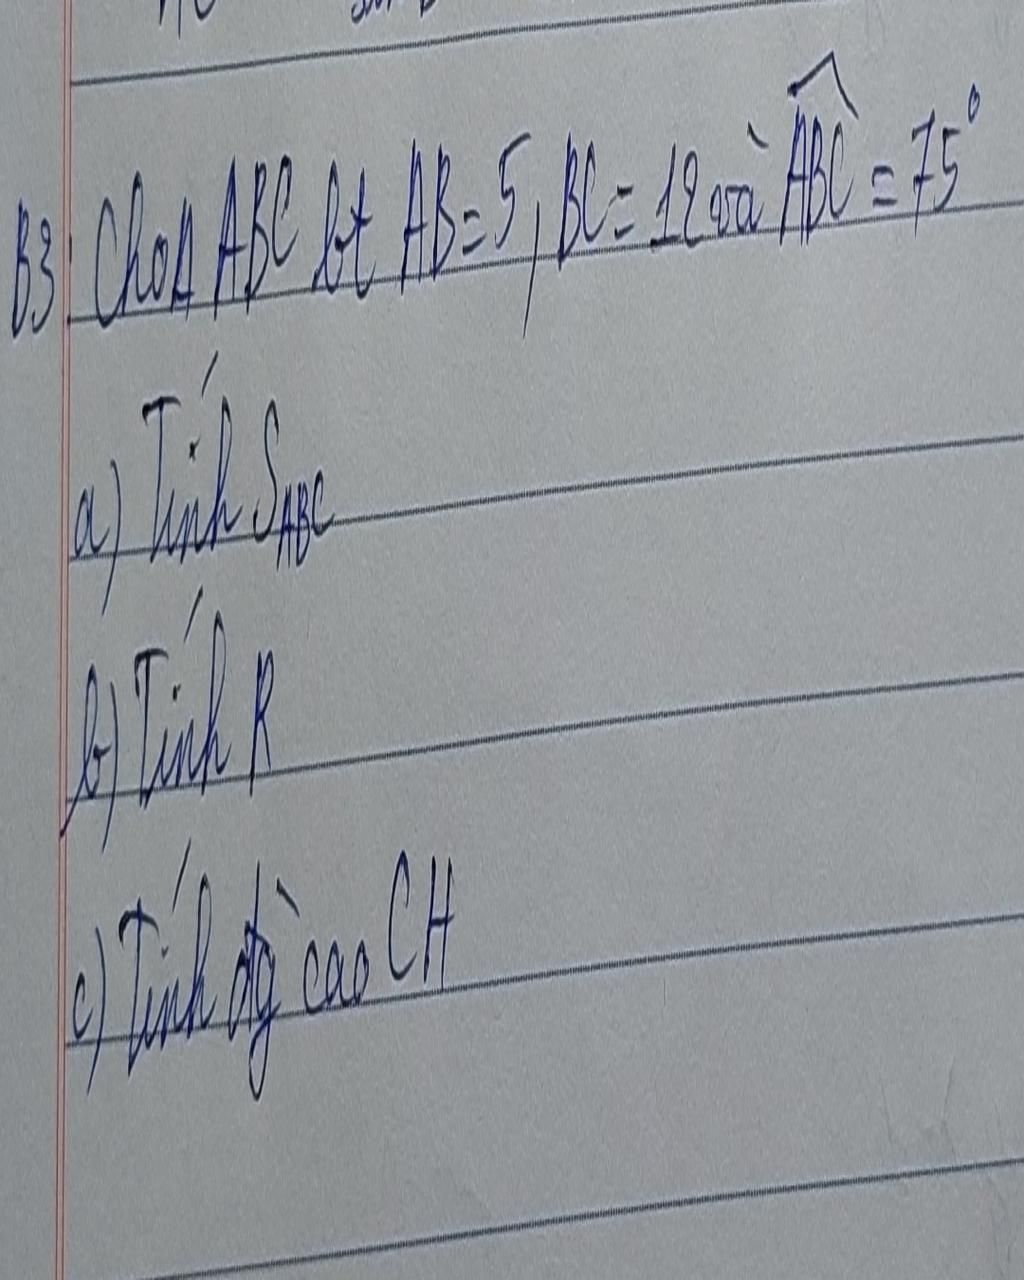 B3: Cho Δ ABC bt AB = 5, BC = 12 và \widehat{ABC} = 75°
a) Tính S_{ABC}
b) Tính R
c) Tính đg cao CH